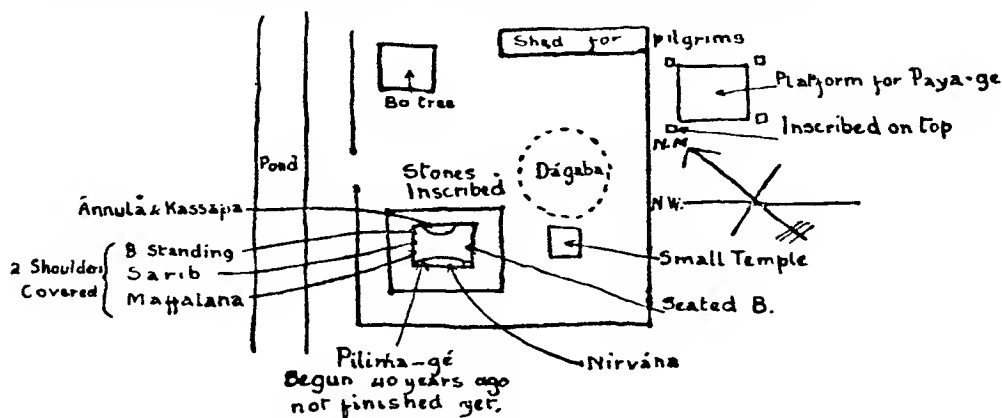 Shed for pilgrims
Platform for Paya-ge
Bo tree
Inscribed on top
N.M
Pond
Stones
Inscribed
Dágaba
N.W.
Ánnulå & Kassapa
2 Shoulders
Covered
B Standing
Sarib
Small Temple
Seated B.
Pilima-gé
Begun 40 years ago
not finished yet.
Nirvána